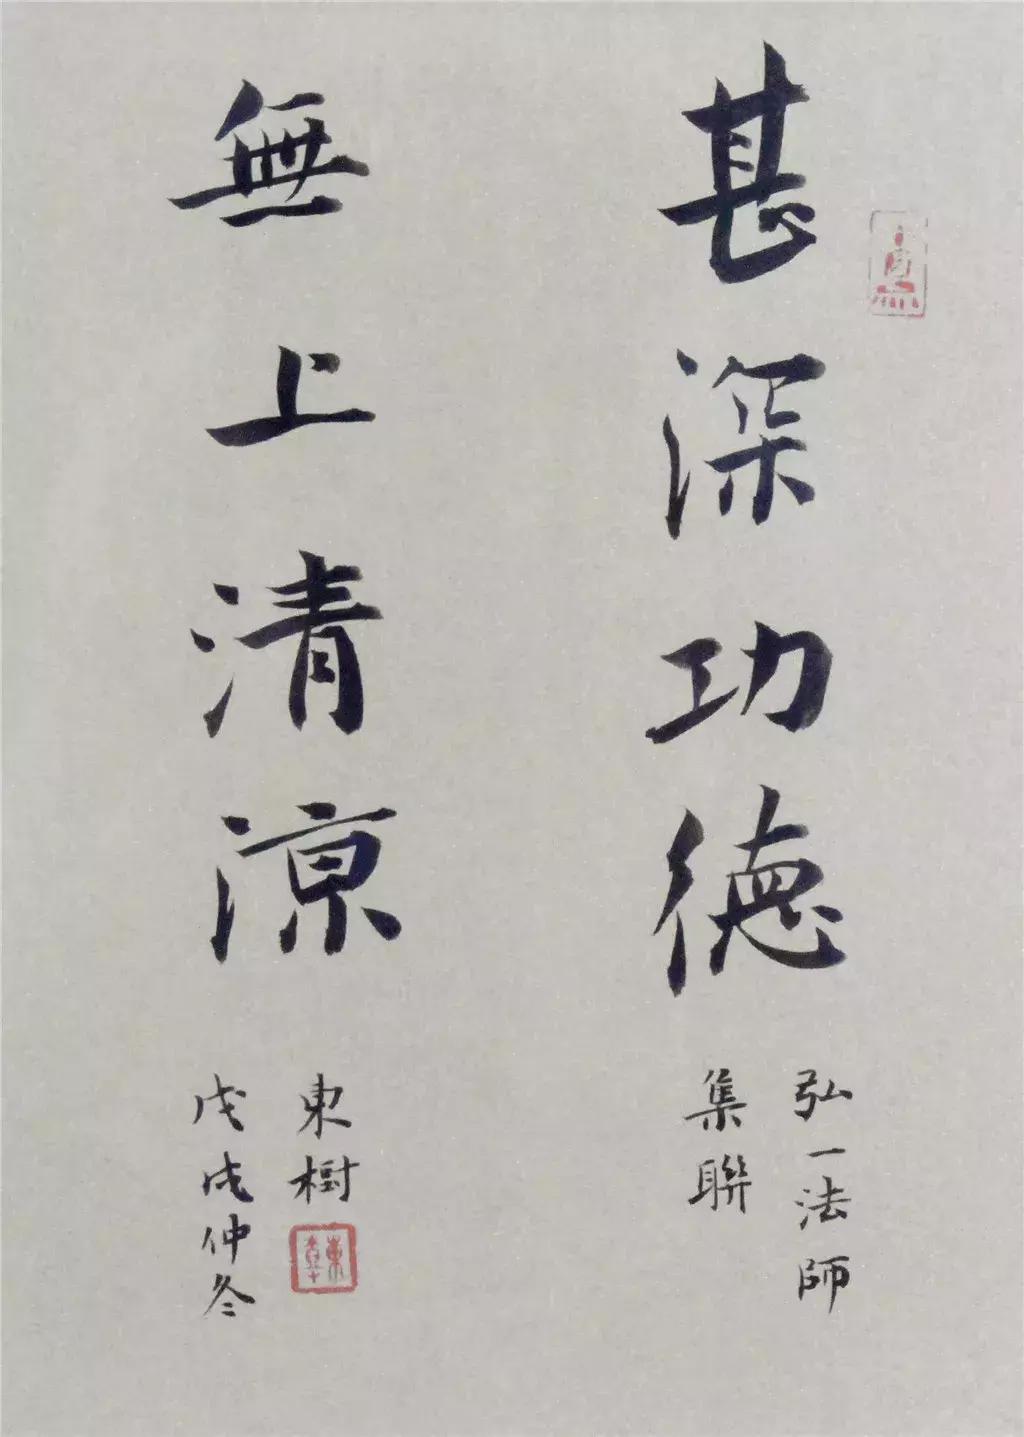 甚深功德
弘一法師
集聯
無上清涼
東樹
戊戌仲冬